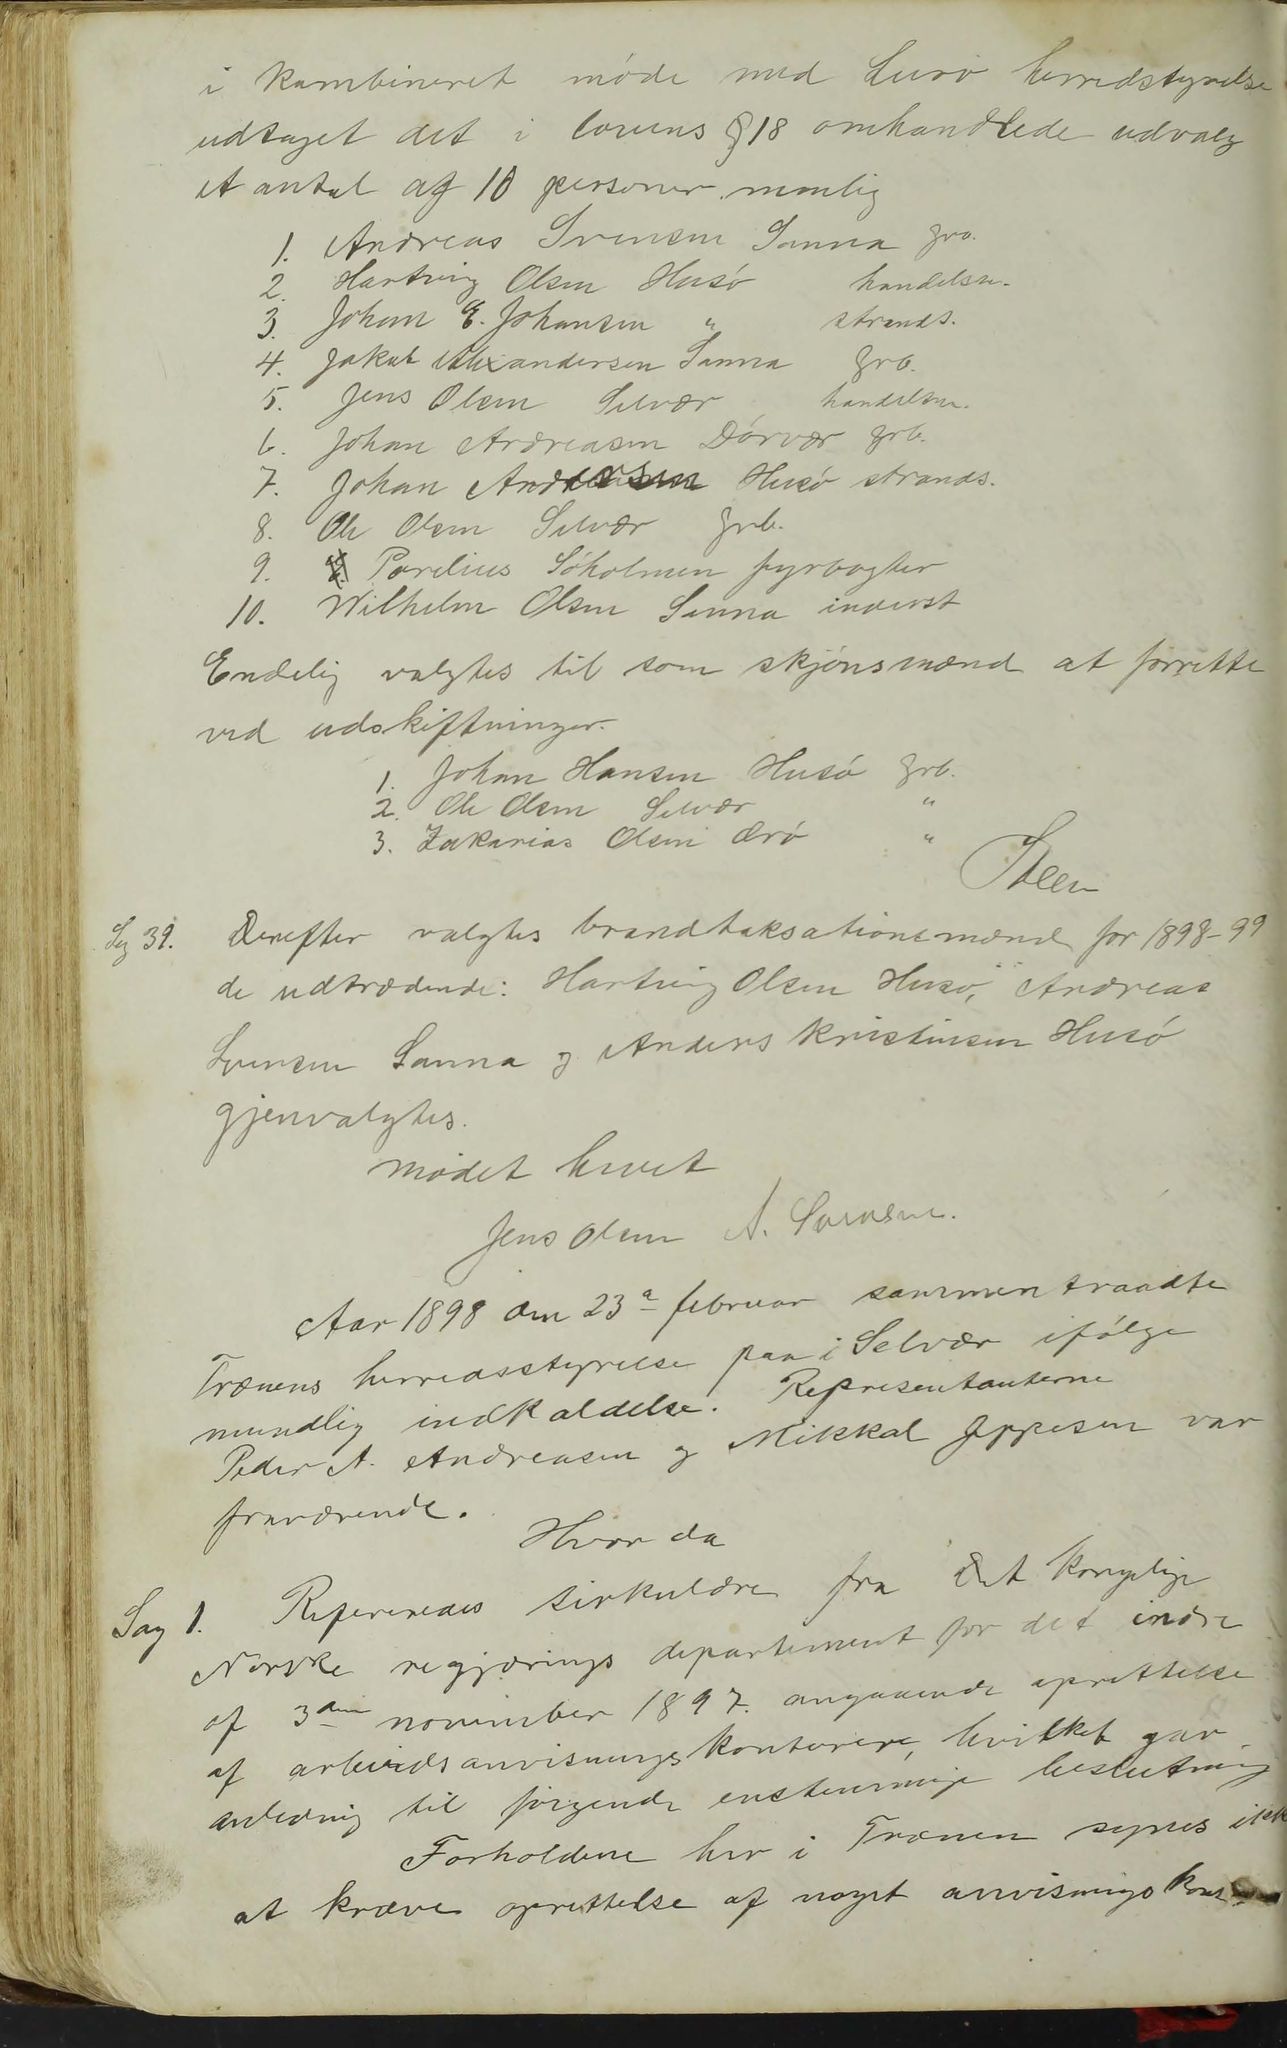 i kombineret møde med Lurø herredstyrelse
udtaget det i lovens § 18 omhandlede udvalg
et antal af 10 personer nemlig
1. Andreas Svensen Sanna grb.
2. Hartvig Olsen Husø handelsm.
3. Johan E. Johansen " strands.
4. Jakob Alexandersen Sanna grb.
5. Jens Olsen Selvær handelsm.
6. Johan Andreasen Dørvær grb.
7. Johan Andersen Husø strands.
8. Ole Olsen Selvær grb.
9. Parelius Søholmen fyrvogter
10. Wilhelm Olsen Sanna inderst
Endelig valgtes til som skjønsmænd at forrette
ved udskiftninger.
1. Johan Hansen Husø grb.
2. Ole Olsen Selvær "
3. Zakarias Olsen Ørø "
Sag 39. Derefter valgtes brandtaksationsmænd for 1898-99
de udtrædende: Hartvig Olsen Husø, Andreas
Svensen Sanna og Anders Kristensen Husø
gjenvalgtes.
Mødet hævet
Jens Olsen A. Svensen.
Aar 1898 den 23a februar sammentraadte
Trænens herredsstyrelse paa i Selvær ifølge
mundlig indkaldelse. Repræsentanterne
Peder A. Andreasen og Mikkal Jeppesen var
fraværende.
Hvor da
Sag 1. Refereredes sirkulære fra Det kongelige
Norske regjærings departement for det indre
af 3den november 1897 angaaende oprettelse
af arbeidsanvisningskontorer, hvilket gav
anledning til følgende enstemmige beslutning
Forholdene her i Trænen synes ikke
at kræve oprettelse af noget anvisningskon